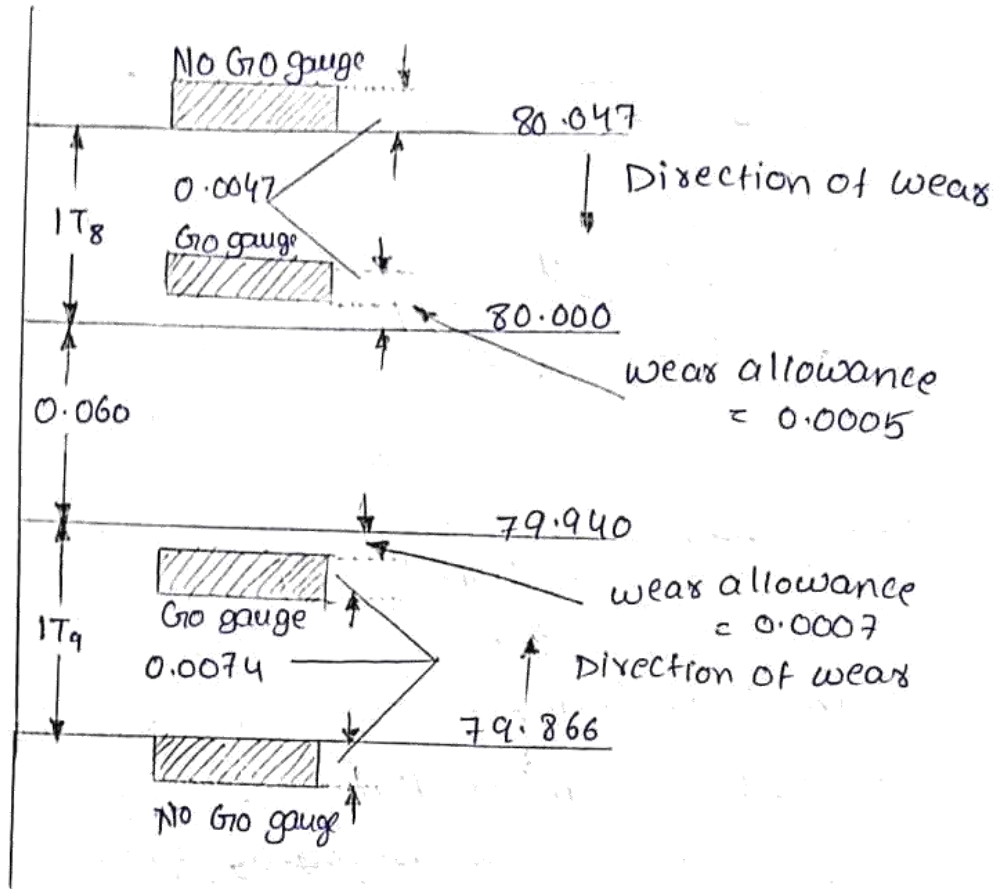 No GO gauge
80.047
Direction of wear
0.0047
IT8
Go gauge
80.000
wear allowance
= 0.0005
0.060
79.940
wear allowance
= 0.0007
Go gauge
IT9
0.0074
Direction of wear
79.866
No Go gauge